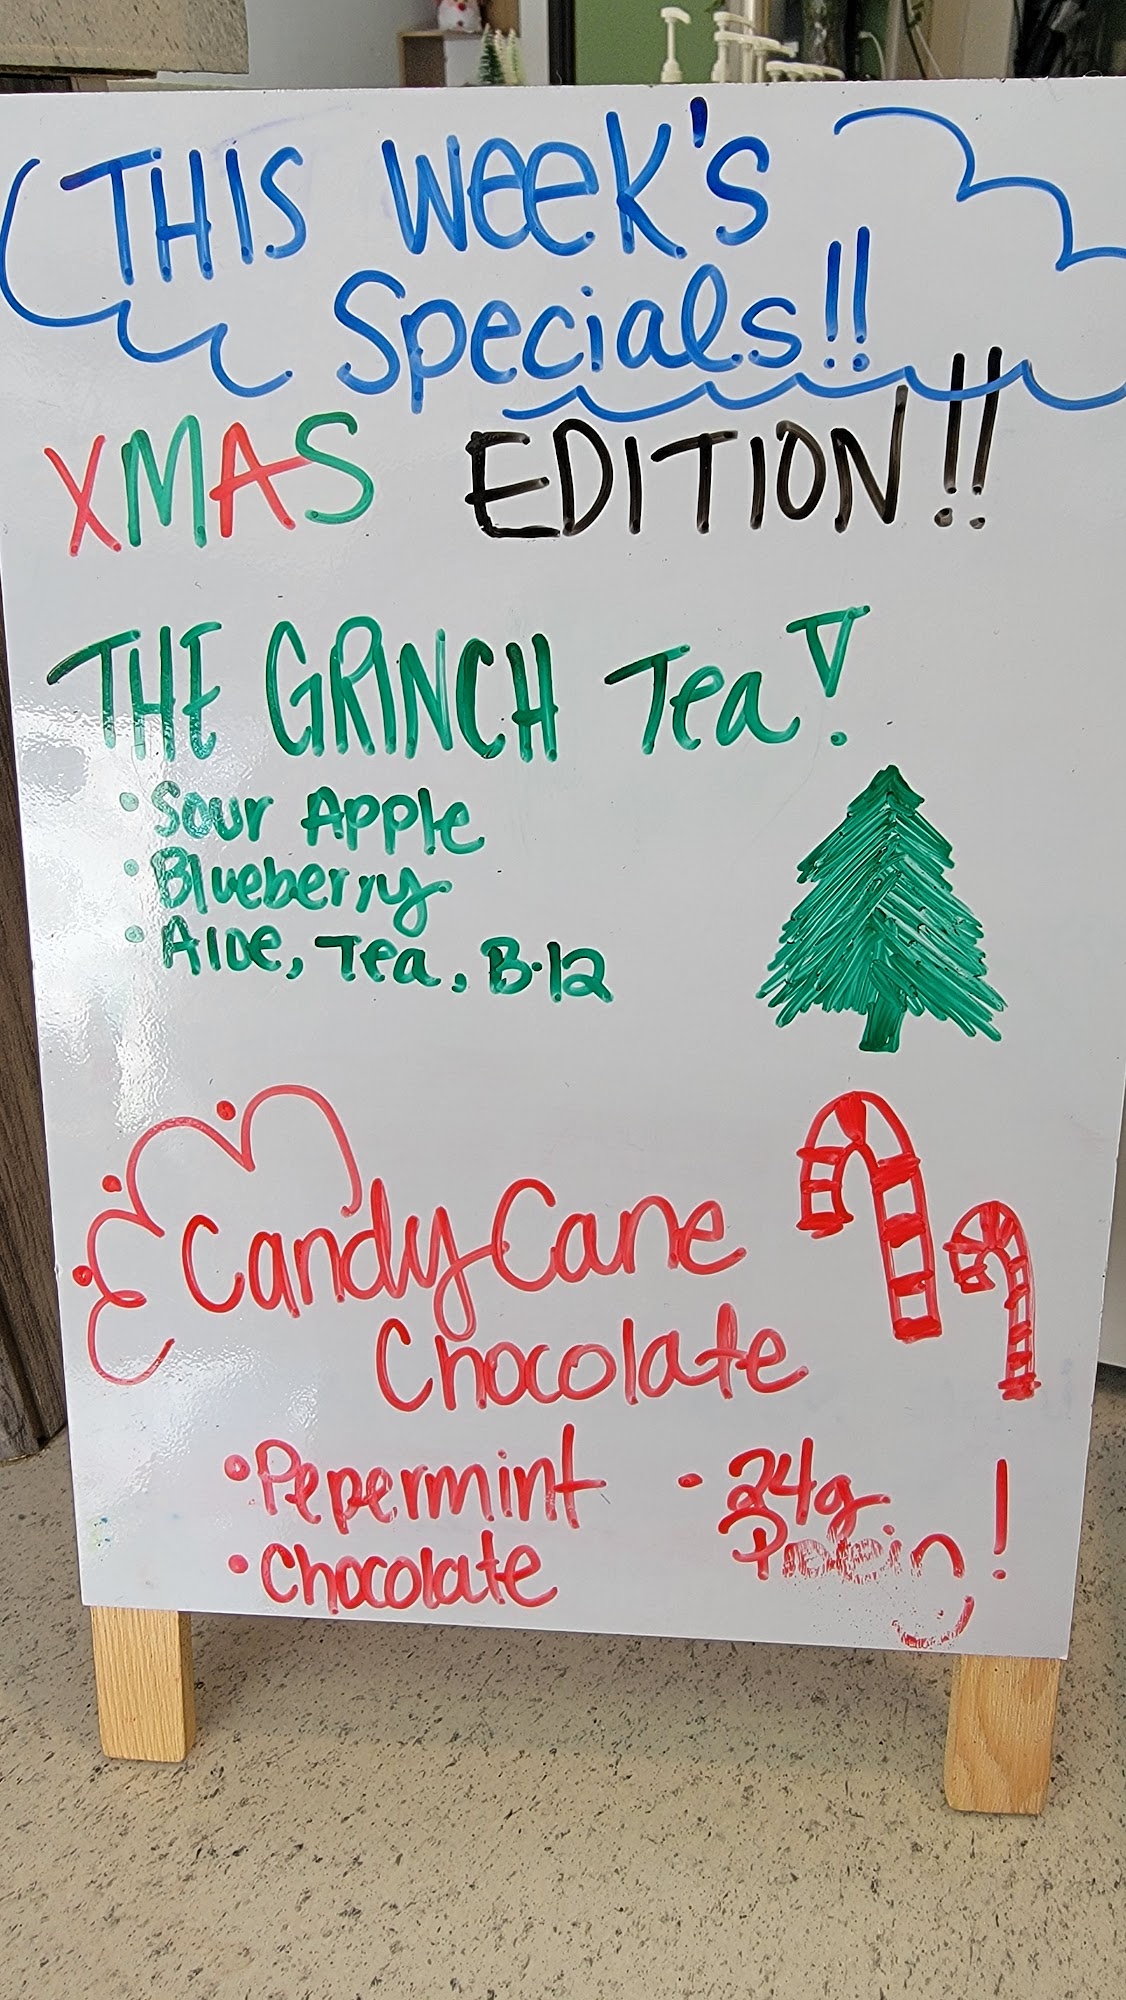 THIS WEEK'S
Specials!!
XMAS EDITION!!
THE GRINCH Tea!
• Sour Apple
• Blueberry
• Aloe, Tea, B-12
Candy Cane
Chocolate
• Pepermint • 24g
Protein!
• Chocolate